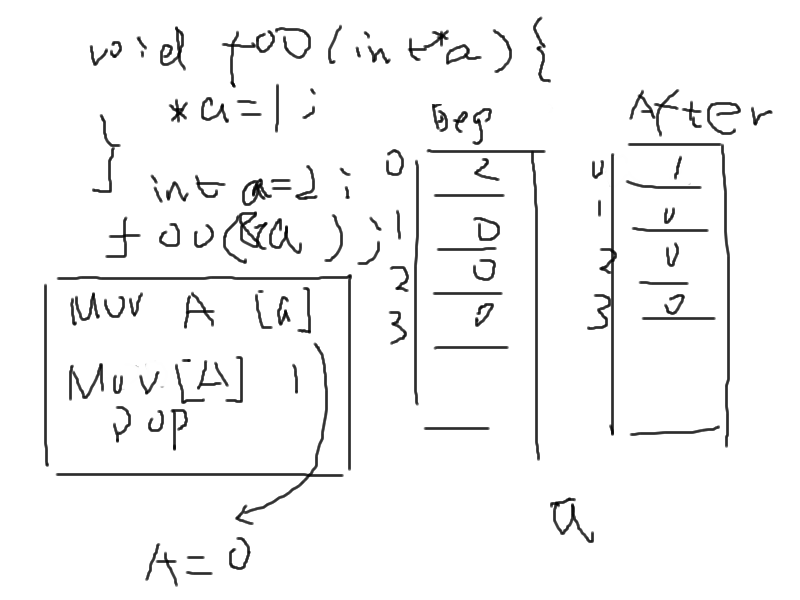 void foo(int*a){
*a=1;
}
int a=2;
foo(&a);
Mov A [a]
Mov [A] 1
pop
A=0
Beg
0 2
1 0
2 0
3 0
After
0 1
1 0
2 0
3 0
a